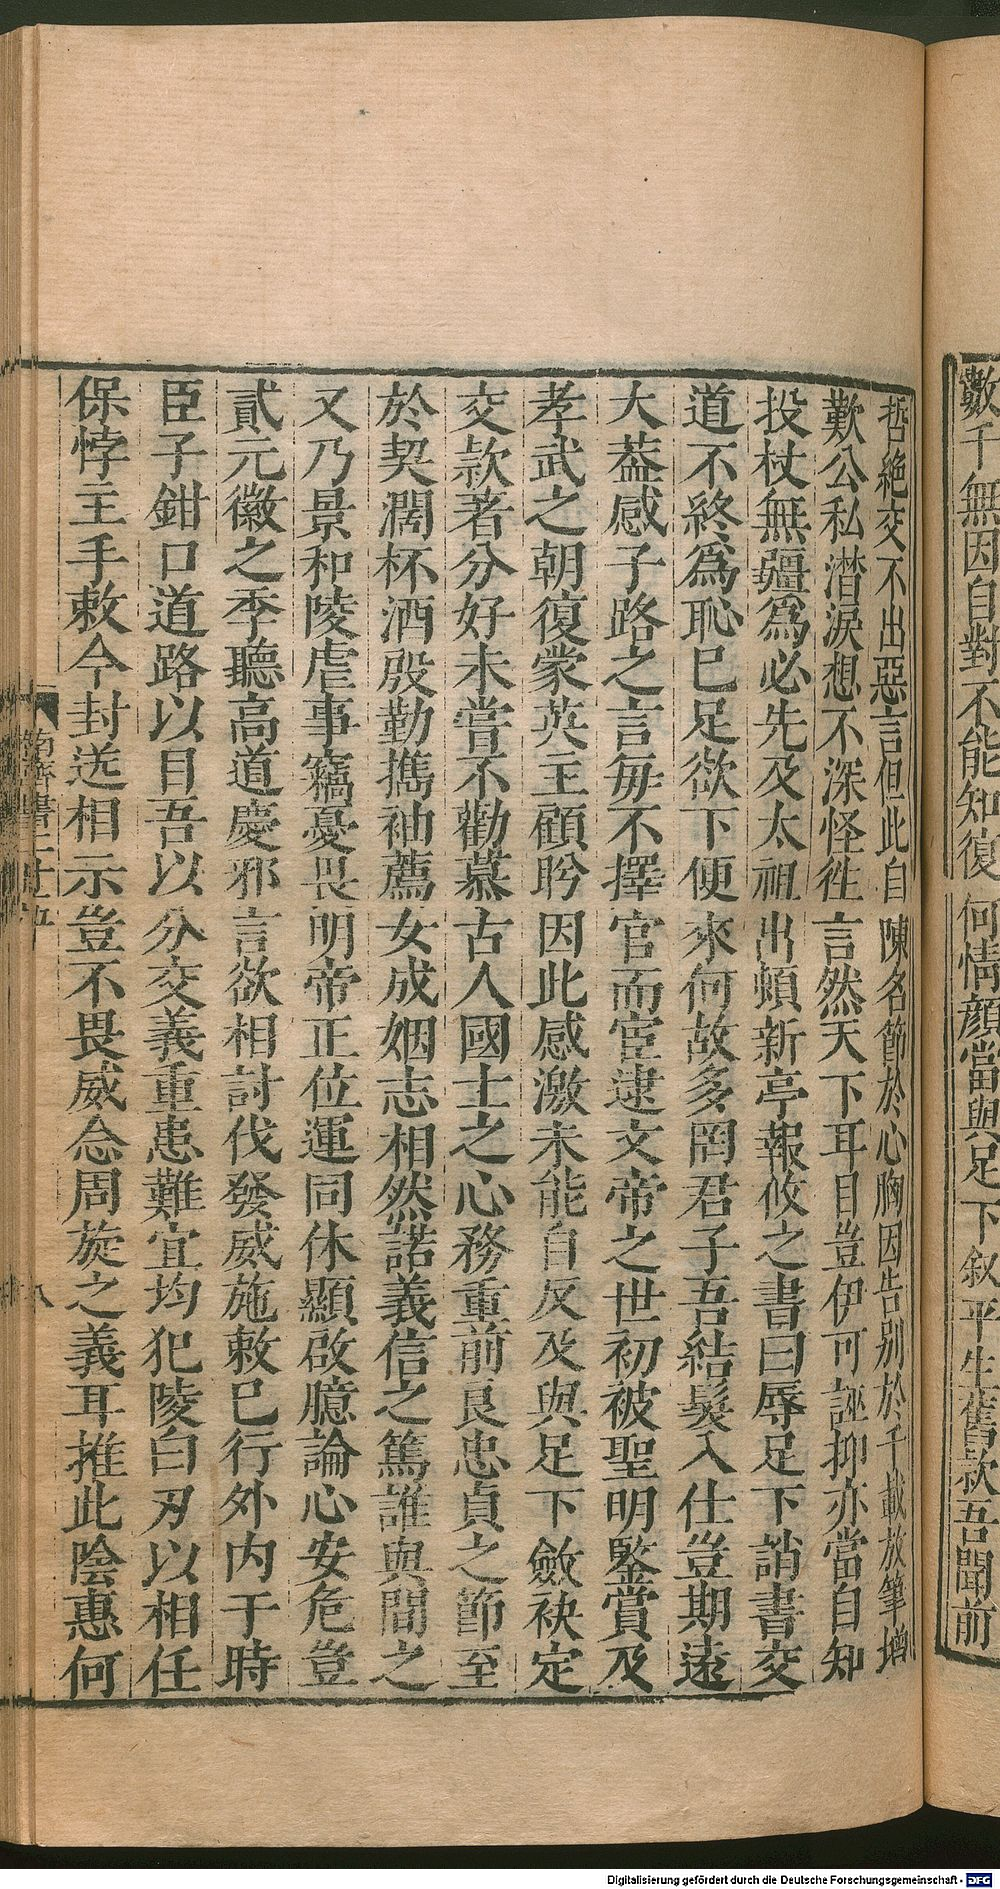 數千無因自對不能知復何情顏當與足下敘平生舊款吾聞前
哲絶交不出惡言但此自陳名節於心胸因告别於千載放筆增
歎公私潸淚想不深怪徃言然天下耳目豈伊可誣抑亦當自知
投杖無疆爲必先及太祖出頓新亭報攸之書曰辱足下誚書交
道不終爲恥已足欲下便來何故多罔君子吾結髮入仕豈期遠
大葢感子路之言每不擇官而宦逮文帝之世初被聖明鑒賞及
孝武之朝復蒙英主顧眄因此感激未能自反及與足下斂袂定
交款著分好未嘗不勸慕古人國士之心務重前良忠貞之節至
於契濶杯酒殷勤擕袖薦女成姻志相然諾義信之篤誰與間之
又乃景和陵虐事竊憂畏明帝正位運同休顯啟臆論心安危豈
貳元徽之季聽高道慶邪言欲相討伐發威施敕已行外内于時
臣子鉗口道路以目吾以分交義重患難宜均犯陵白刃以相任
保悖主手敕今封送相示豈不畏威念周旋之義耳推此陰惠何
南齊書二十五
八
Digitalisierung gefördert durch die Deutsche Forschungsgemeinschaft - DFG